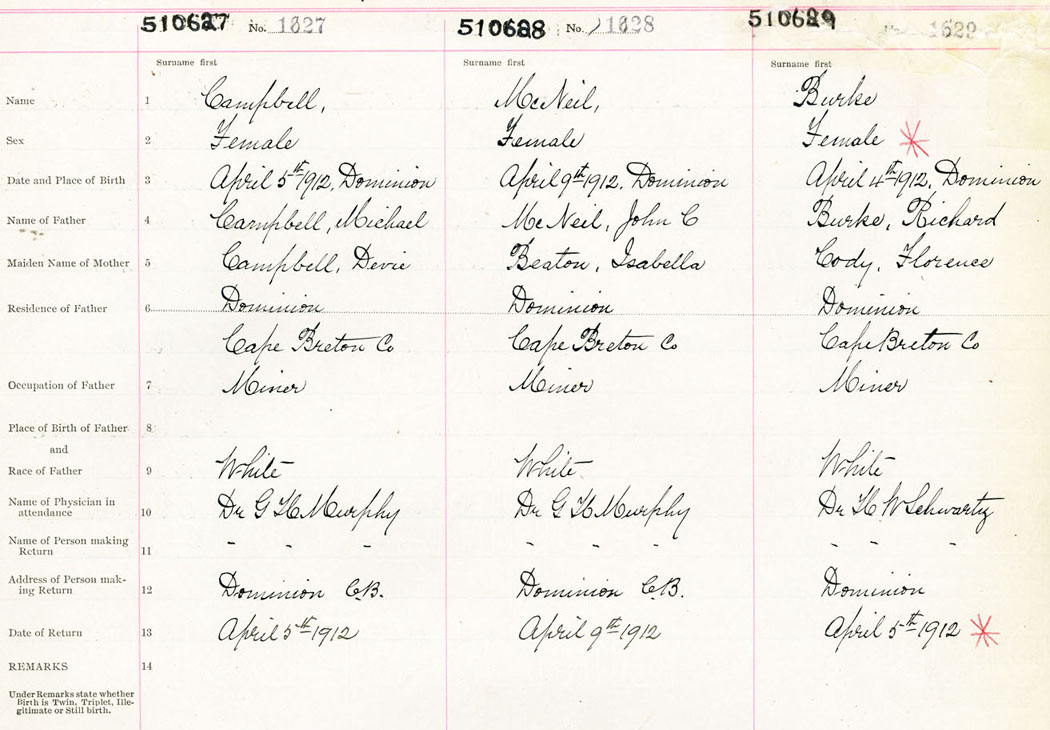 510627 No. 1627 510628 No. 1628 510629 No. 1629
Surname first Surname first Surname first
Name 1 Campbell, McNeil, Burke
Sex 2 Female Female Female
Date and Place of Birth 3 April 5th 1912, Dominion April 9th 1912, Dominion April 4th 1912, Dominion
Name of Father 4 Campbell, Michael McNeil, John C Burke, Richard
Maiden Name of Mother 5 Campbell, Devie Beaton, Isabella Cody, Florence
Residence of Father 6 Dominion Dominion Dominion
Cape Breton Co Cape Breton Co Cape Breton Co
Occupation of Father 7 Miner Miner Miner
Place of Birth of Father 8
and
Race of Father 9 White White White
Name of Physician in
attendance 10 Dr G H Murphy Dr G H Murphy Dr H W Schwartz
Name of Person making
Return 11 - - - - - - - - -
Address of Person mak-
ing Return 12 Dominion C.B. Dominion C.B. Dominion
Date of Return 13 April 5th 1912 April 9th 1912 April 5th 1912
REMARKS 14
Under Remarks state whether
Birth is Twin, Triplet, Ille-
gitimate or Still birth.